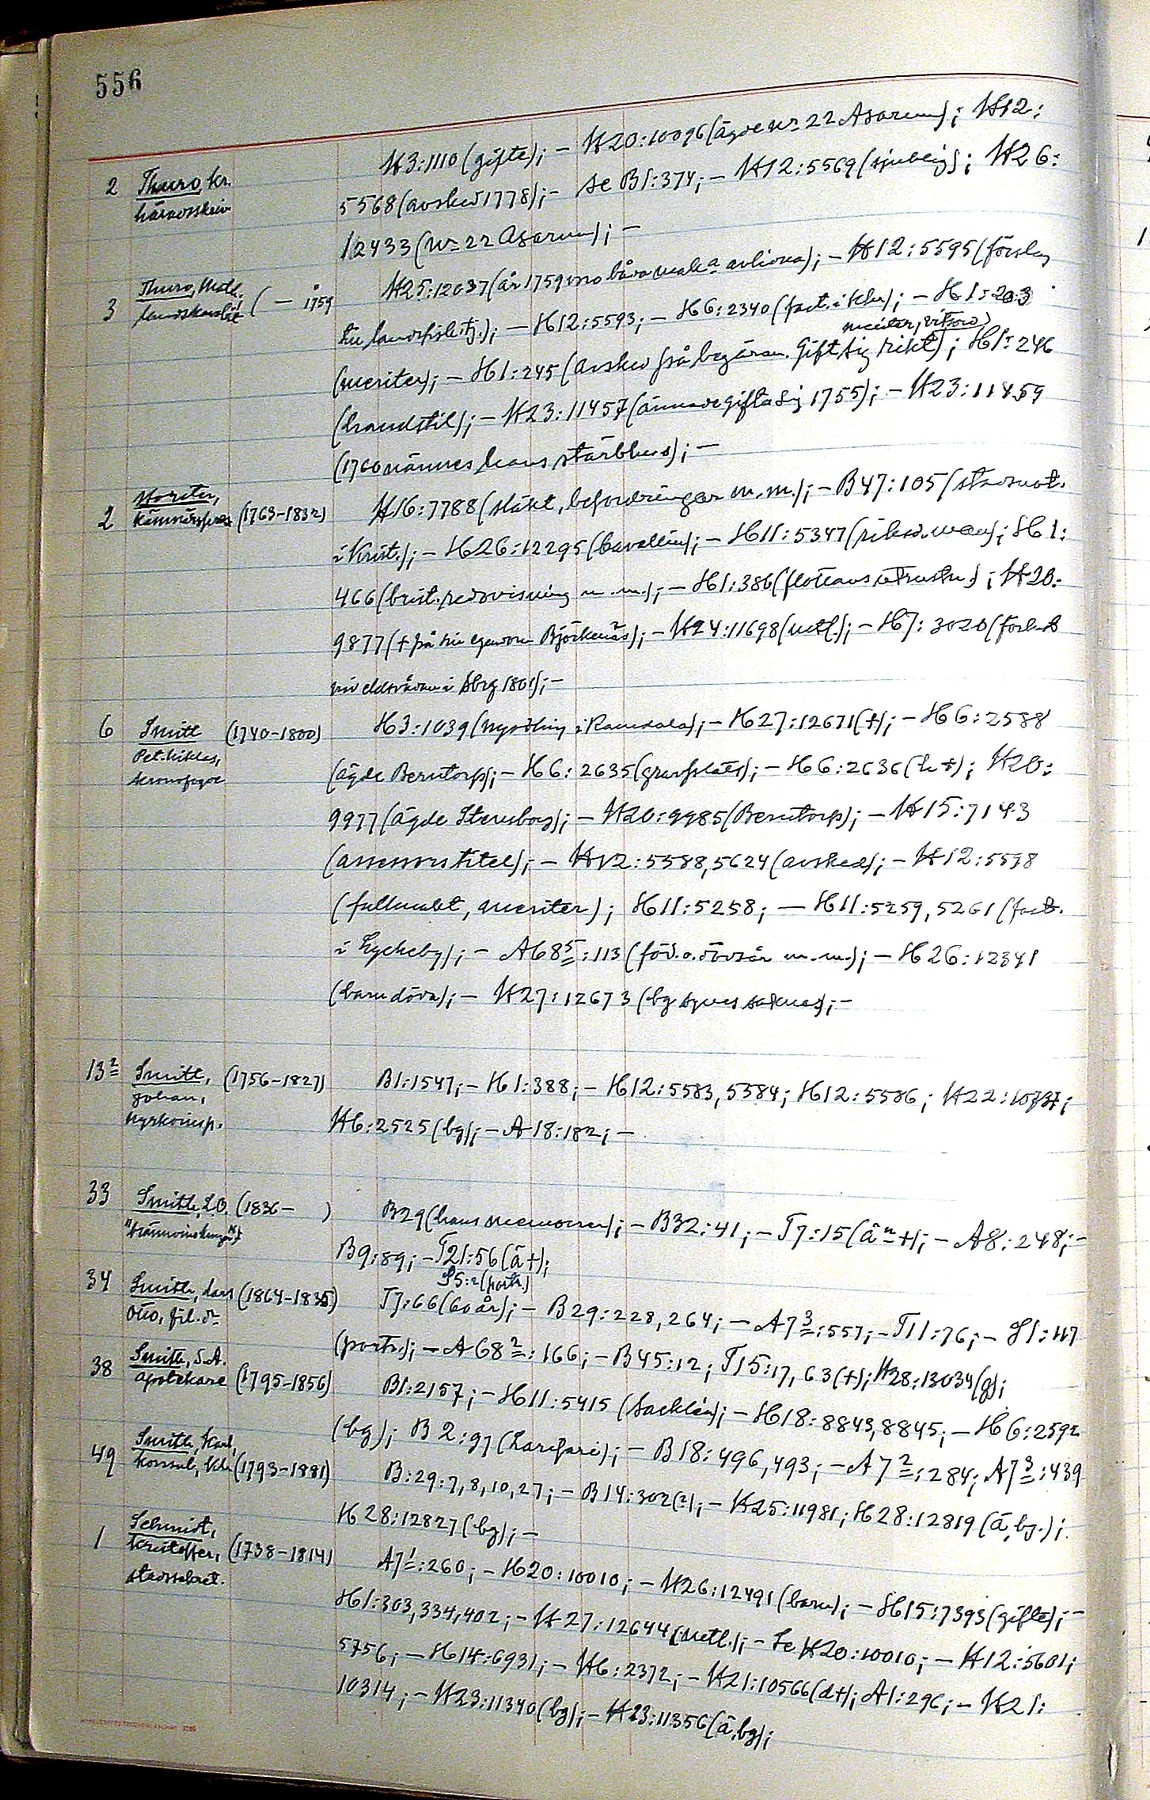 556
2 Thuro, Kr. H3:1110 (gifte); – H20:10096 (ägde nr 22 Asarum); H12:
häradsskriv. 5568 (avsked 1778); – se B1:374; – H12:5569 (sjuklig); H26:
12433 (Nr 22 Asarum); –
3 Thuro, Matt. ( – 1759 H25:12037 (år 1759 avliden); – H12:5595 (förslag
H12:5593; – H6:2340 (fast. i Khn); – H1:203
meriter,
(meriter); – H1:245 (avsked på begäran. Gift sig rikt); H1:246
(handstil); – H23:11457 (ämnade gifta sig 1755); – H23:11459
(1760 nämnes hans stärbhus); –
2 (1763–1832) H16:7788 (släkt, befordringar m.m.); – B47:105 (stadsnot.
i Krist.); – H26:12295 (Cavallin); – H11:5347 (riksd.man); H1:
466 (brist. redovisning m.m.); – H1:386 (flottans utrustn.); H20:
9877 (+ på sin egendom Björkenäs); – H24:11698 (nctl.); – H7:3020 (förlust
vid eldsvådan i Sbrg 1801); –
6 Smitt (1740–1800) H3:1039 (nyodling i Ramdala); – H27:12671 (+); – H6:2588
Pet. Niklas, (ägde Berntorp); – H6:2635 (gravplats); – H6:2636 (h +); H20:
kronofogde 9977 (ägde Sternborg); – H20:9985 (Berntorp); – H15:7143
(assessors titel); – H12:5588, 5624 (avsked); – H12:5538
(fullmakt, meriter); H11:5258; – H11:5259, 5261 (fast.
i Lyckeby); – A68⁵:113 (föd. o. dödsår m.m.); – H26:12341
(barn döva); – H27:12673 (bg synes saknas); –
13² Smitt, (1756–1827) B1:1547; – H1:388; – H12:5583, 5584; H12:5586; H22:10737;
Johan,
kyrkoinsp. H6:2525 (bg); – A18:182; –
33 Smith, L.O. (1836– ) B29 (hans memoarer); – B32:41; – T7:15 (ân +); – A8:248; –
B9:89; – T21:56 (â +);
S5:2 (portr.)
34 Smith, Lars (1864–1835) T7:66 (60 år); – B29:228, 264; – A7³:557; – T11:76; – S1:117
Otto, fil. dr (portr.); – A68²:166; – B45:12; T15:17, 63 (+); H28:13034 (g);
38 Smith, S.A.
apotekare (1795–1856) B1:2157; – H11:5415 (Sacklén); – H18:8843, 8845; – H6:2592
(bg); B2:97 (Harifari); – B18:496, 493; – A7²:284; A7³:439
49 Smith, Karl,
konsul, Khn (1793–1881) B:29:7, 8, 10, 27; – B14:302 (2); – H25:11981; H28:12819 (â, bg.);
H28:12827 (bg); –
1 Schmidt,
Kristoffer, (1738–1814) A7¹:260; – H20:10010; – H26:12491 (barn); – H15:7393 (gifte); –
stadssekret. H1:303, 334, 402; – H27:12644 (nctl.); – Se H20:10010; – H12:5601;
5756; – H14:6931; – H6:2372; – H21:10566 (d +); A1:296; – H21:
10314; – H23:11340 (bg); – H23:11356 (â, bg);